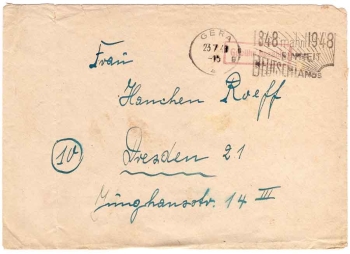 GERA
23.7.48
-15
1848 mahnt 1948
EINHEIT
DEUTSCHLANDS
Frau
Hanchen Roeff
(10)
Dresden 21
Jünghansstr. 14 III